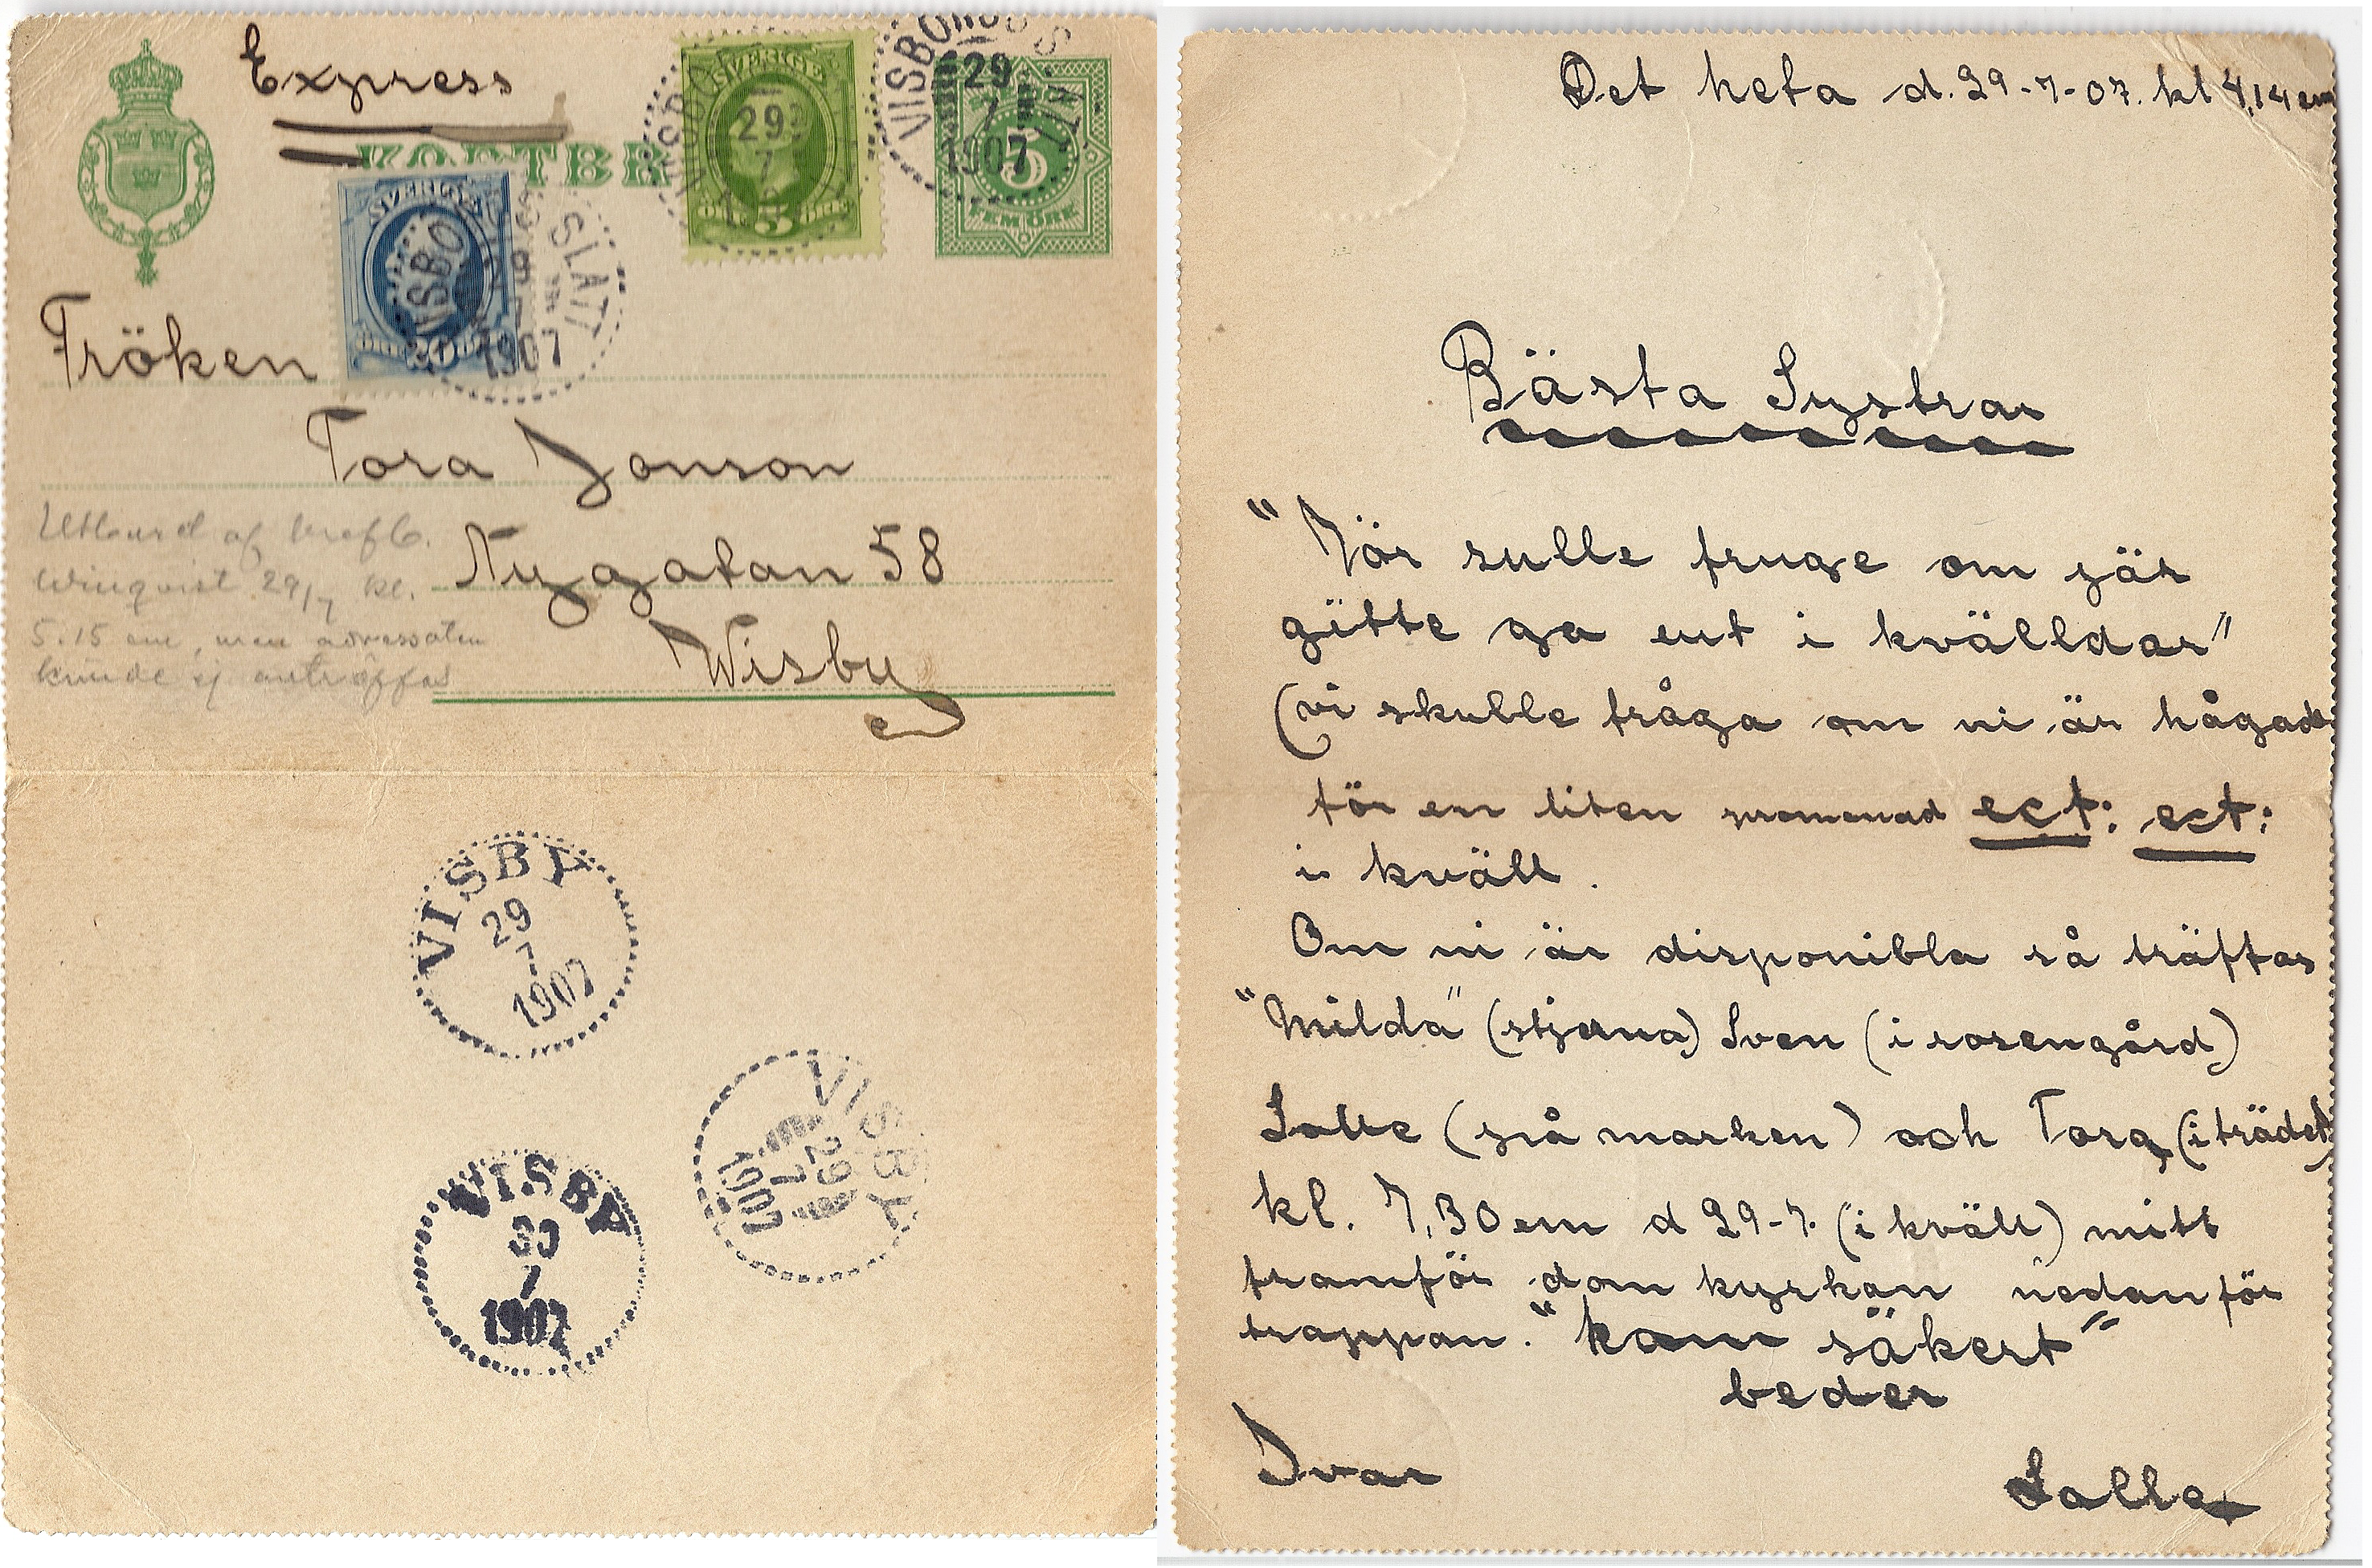 Express
KORTBREF
SVERIGE
5 ÖRE
VISBORGSSLÄTT
29
7
1907
5
FEM ÖRE
SVERIGE
20 ÖRE
VISBORGSSLÄTT
29
7
1907
Fröken
Tora Jonson
Nygatan 58
Wisby
Utburet af brefb.
Winqvist 29/7 kl.
5.15 em, men adressaten
kunde ej anträffas
VISBY
29
7
1907
VISBY
29
7
1907
VISBY
30
7
1907
Det heta d. 29-7-07. kl 4,14 em
Bästa Systrar
"Vör sulle fruge om jär
gitte ga eut i kvälldar"
(vi skulle fråga om ni är hågade
för en liten promenad ect: ect:
i kväll.
Om ni är disponibla så träffas
"Milda" (stjerna) Sven (i rosengård)
Salle (på marken) och Tora (i trädet)
kl. 7,30 em d 29-7. (i kväll) mitt
framför domkyrkan nedanför
trappan. "kom säkert"
beder
Ivar
Salle